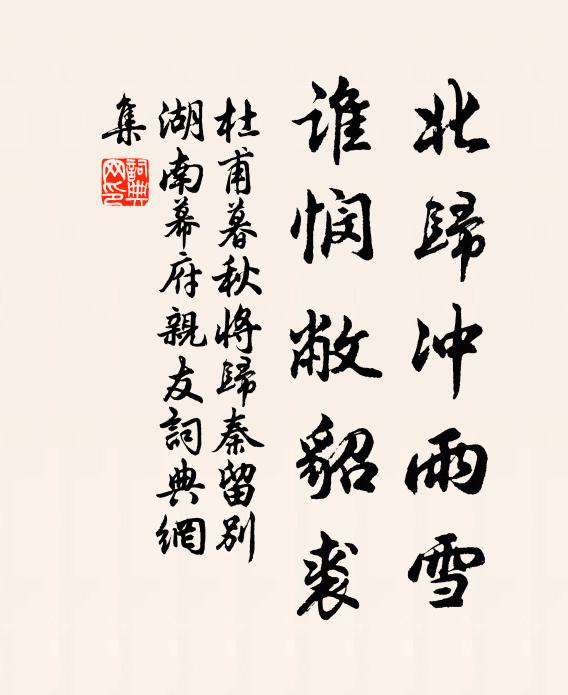 北歸冲雨雪
誰憫敝貂裘
杜甫暮秋將歸秦留別
湖南幕府親友詞典網
集
詞典
网印